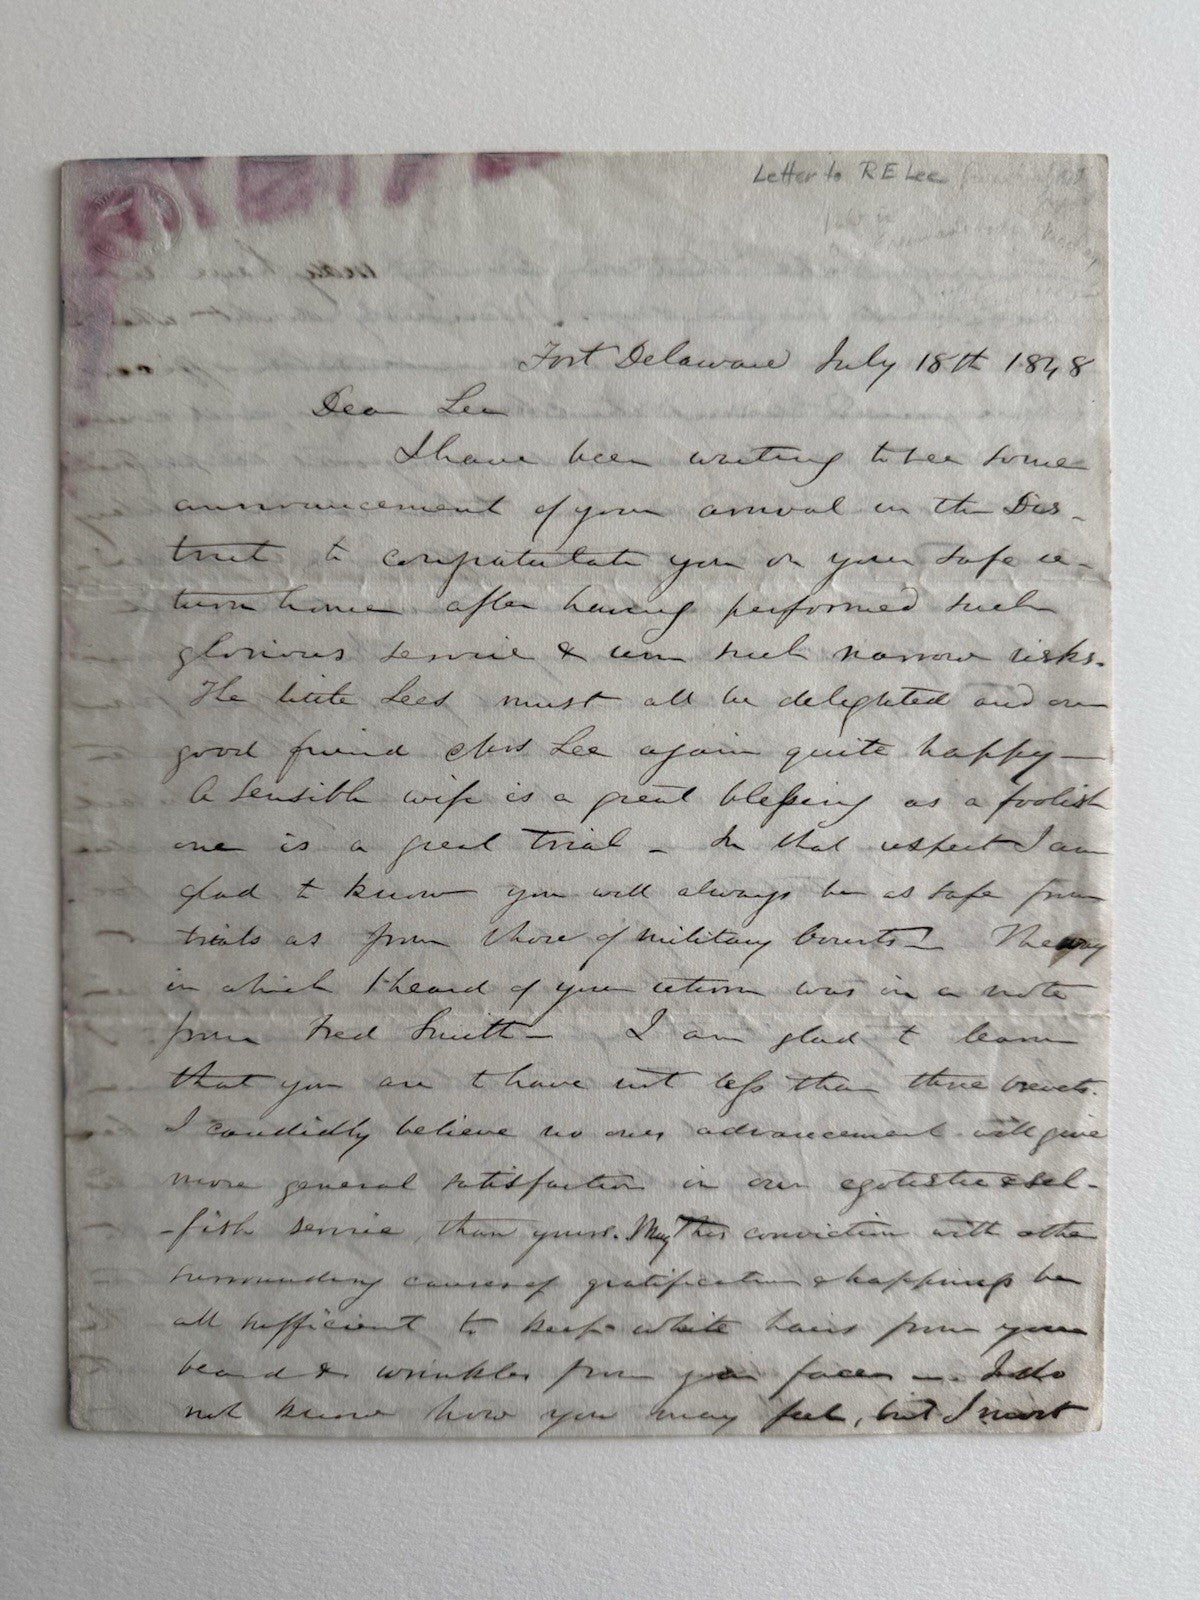 Letter to R E Lee
Fort Delaware July 18th 1848
Dear Lee
I have been waiting to see some
announcement of your arrival in the Dis-
trict to congratulate you on your safe re-
turn home after having performed such
glorious service & run such narrow risks.
The little Lees must all be delighted and our
good friend Mrs Lee again quite happy —
A sensible wife is a great blessing as a foolish
one is a great trial — In that respect I am
glad to know you will always be as safe from
trials as from those of military Courts — The way
in which I heard of your return was in a note
from Fred Smith — I am glad to learn
that you are to have not less than three brevets.
I candidly believe no ones advancement will give
more general satisfaction in our egotistic & sel-
-fish service, than yours. May this conviction with other
surrounding causes of gratification & happiness be
all sufficient to keep white hairs from your
beard & wrinkles from your face — I do
not know how you may feel, but I must